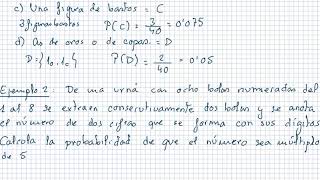 c) Una figura de bastos = C
3 figuras bastos P(C) = 3/40 = 0'075
d) As de oros o de copas. = D
D: {1o, 1c} P(D) = 2/40 = 0'05
Ejemplo 2: De una urna con ocho bolas numeradas del
1 al 8 se extraen consecutivamente dos bolas y se anota
el número de dos cifras que se forma con sus dígitos
Calcula la probabilidad de que el número sea múltiplo
de 5